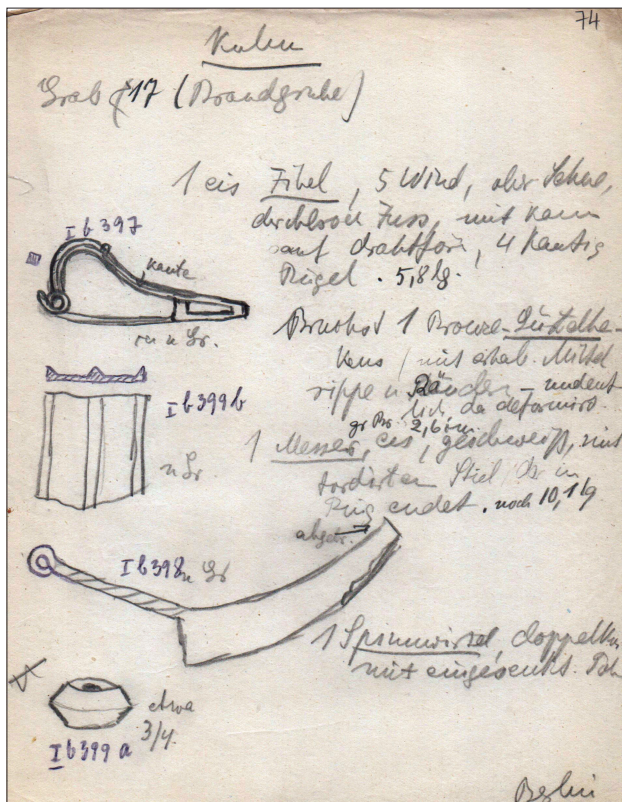 74
Kuhn
Grab 17 (Brandgrube)
1 eis Fibel, 5 Wind, ober Sehne,
Fuss, mit
auf drahtför, 4 Kantig
Bügel. 5,8 lg.
I b 397
Kante
n Gr.
Bruchst 1 Bronze-Gürtelha-
kens / mit erhab. Mittel
rippe u Rändern - undeut
lich, da deformirt.
gr Br. 2,6 cm.
I b 399 b
n Gr
1 Messer, eis, geschweift, mit
tordirten Stiel, der in
Ring endet. noch 10,1 lg
abgebr.
I b 398 n Gr
1 Spinnwirtel, doppelkon
mit eingesenkt.
etwa
3/4.
I b 399 a
Berlin